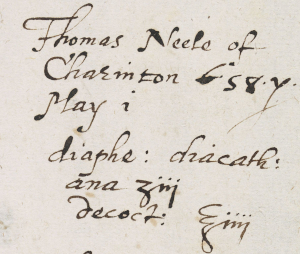 Thomas Neele of
Charinton 58. y.
May i
diaphe: diacath:
ana ʒiij
decoct: ℥iiij